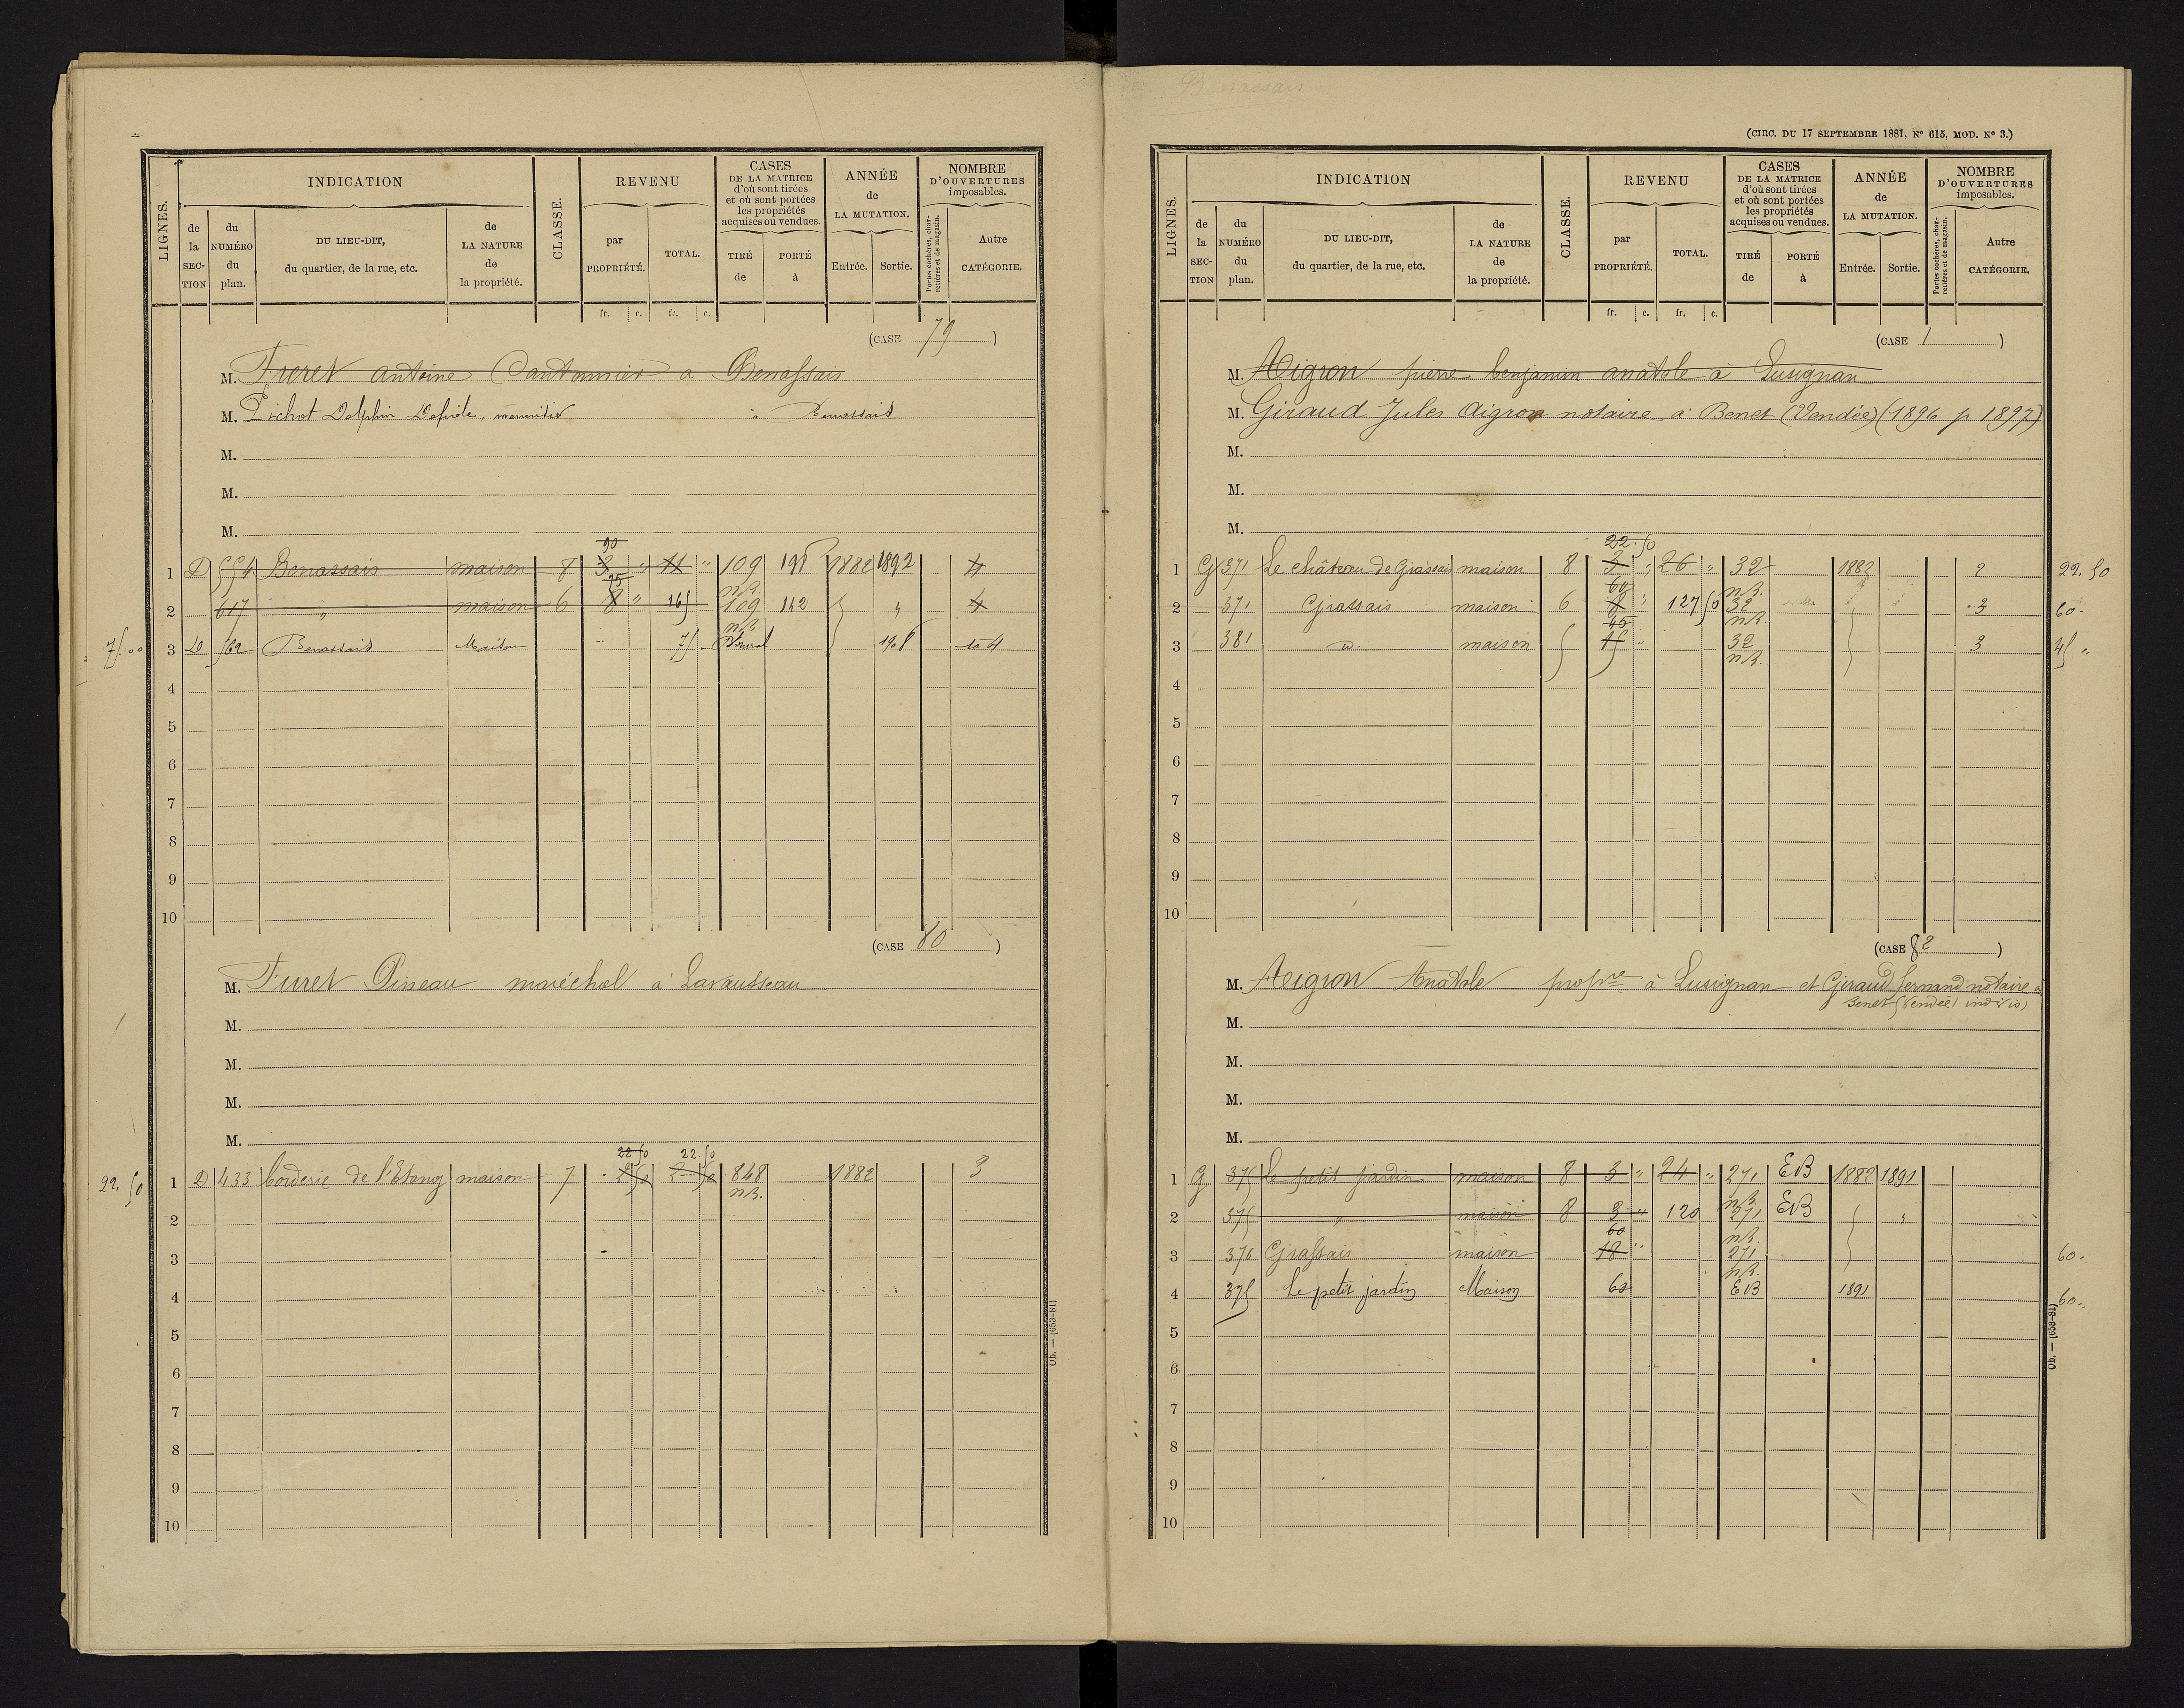 INDICATION
REVENU
CASES
DE LA MATRICE
d'où sont tirées
et où sont portées
les propriétés
acquises ou vendues.
ANNÉE
de
LA MUTATION.
NOMBRE
D'OUVERTURES
imposables.
LIGNES.
de la SECTION
du NUMÉRO du plan.
DU LIEU-DIT,
du quartier, de la rue, etc.
de LA NATURE de la propriété.
CLASSE.
par PROPRIÉTÉ.
TOTAL.
TIRÉ de
PORTÉ à
Entrée.
Sortie.
Portes cochères, charretières et de magasin.
Autre CATÉGORIE.
fr. c. fr. c.
(CASE 79)
M. Freret antoine Cantonnier a Benassais
M. Pichot Delphin, menuisier à Benassais
M.
M.
M.
1 D 554 Benassais maison 8 3 " 11 " 109 198 1882 1892 4
n.B.
2 617 " maison 6 8 " 165 109 142 " 4
n.B.
75.00 3 D 562 Benassais Maison 75 1908 4
4
5
6
7
8
9
10
(CASE 80)
M. Furet Pineau maréchal à Lavausseau
M.
M.
M.
M.
22 50 22.50
22.50 1 D 433 borderie de l'Etang maison 7 2 50 2 50 848 1882 3
n.B.
2
3
4
5
6
7
8
9
10
Ob. — (653-81)
Benassais
(CIRC. DU 17 SEPTEMBRE 1881, N° 615, MOD. N° 3.)
INDICATION
REVENU
CASES
DE LA MATRICE
d'où sont tirées
et où sont portées
les propriétés
acquises ou vendues.
ANNÉE
de
LA MUTATION.
NOMBRE
D'OUVERTURES
imposables.
LIGNES.
de la SECTION
du NUMÉRO du plan.
DU LIEU-DIT,
du quartier, de la rue, etc.
de LA NATURE de la propriété.
CLASSE.
par PROPRIÉTÉ.
TOTAL.
TIRÉ de
PORTÉ à
Entrée.
Sortie.
Portes cochères, charretières et de magasin.
Autre CATÉGORIE.
fr. c. fr. c.
(CASE 1)
M. Aigron pierre benjamin anatole à Lusignan
M. Giraud Jules Aigron notaire a Benet (Vendée) (1896 p 1897)
M.
M.
M.
22.50
1 G 371 Le château de Grassais maison 8 3 " 26 " 32 1882 2 22.50
60 n.B.
2 371 Grassais maison 6 " 127 50 32 3 60.
45 n.B.
3 381 d. maison 15 " 32 3 45 "
n.B.
4
5
6
7
8
9
10
(CASE 82)
M. Aigron Anatole propre à Lusignan et Giraud fernand notaire a
Benet (Vendée) indivis
M.
M.
M.
M.
1 G 375 Le petit jardin maison 8 3 " 24 " 271 EB 1882 1891
n.B.
2 375 " maison 8 3 " 120 271 EB "
60 n.B.
3 376 Grassais maison 18 " 271 60.
n.B.
4 375 Le petit jardin Maison 60 EB 1891 60..
5
6
7
8
9
10
Ob. — (653-81)